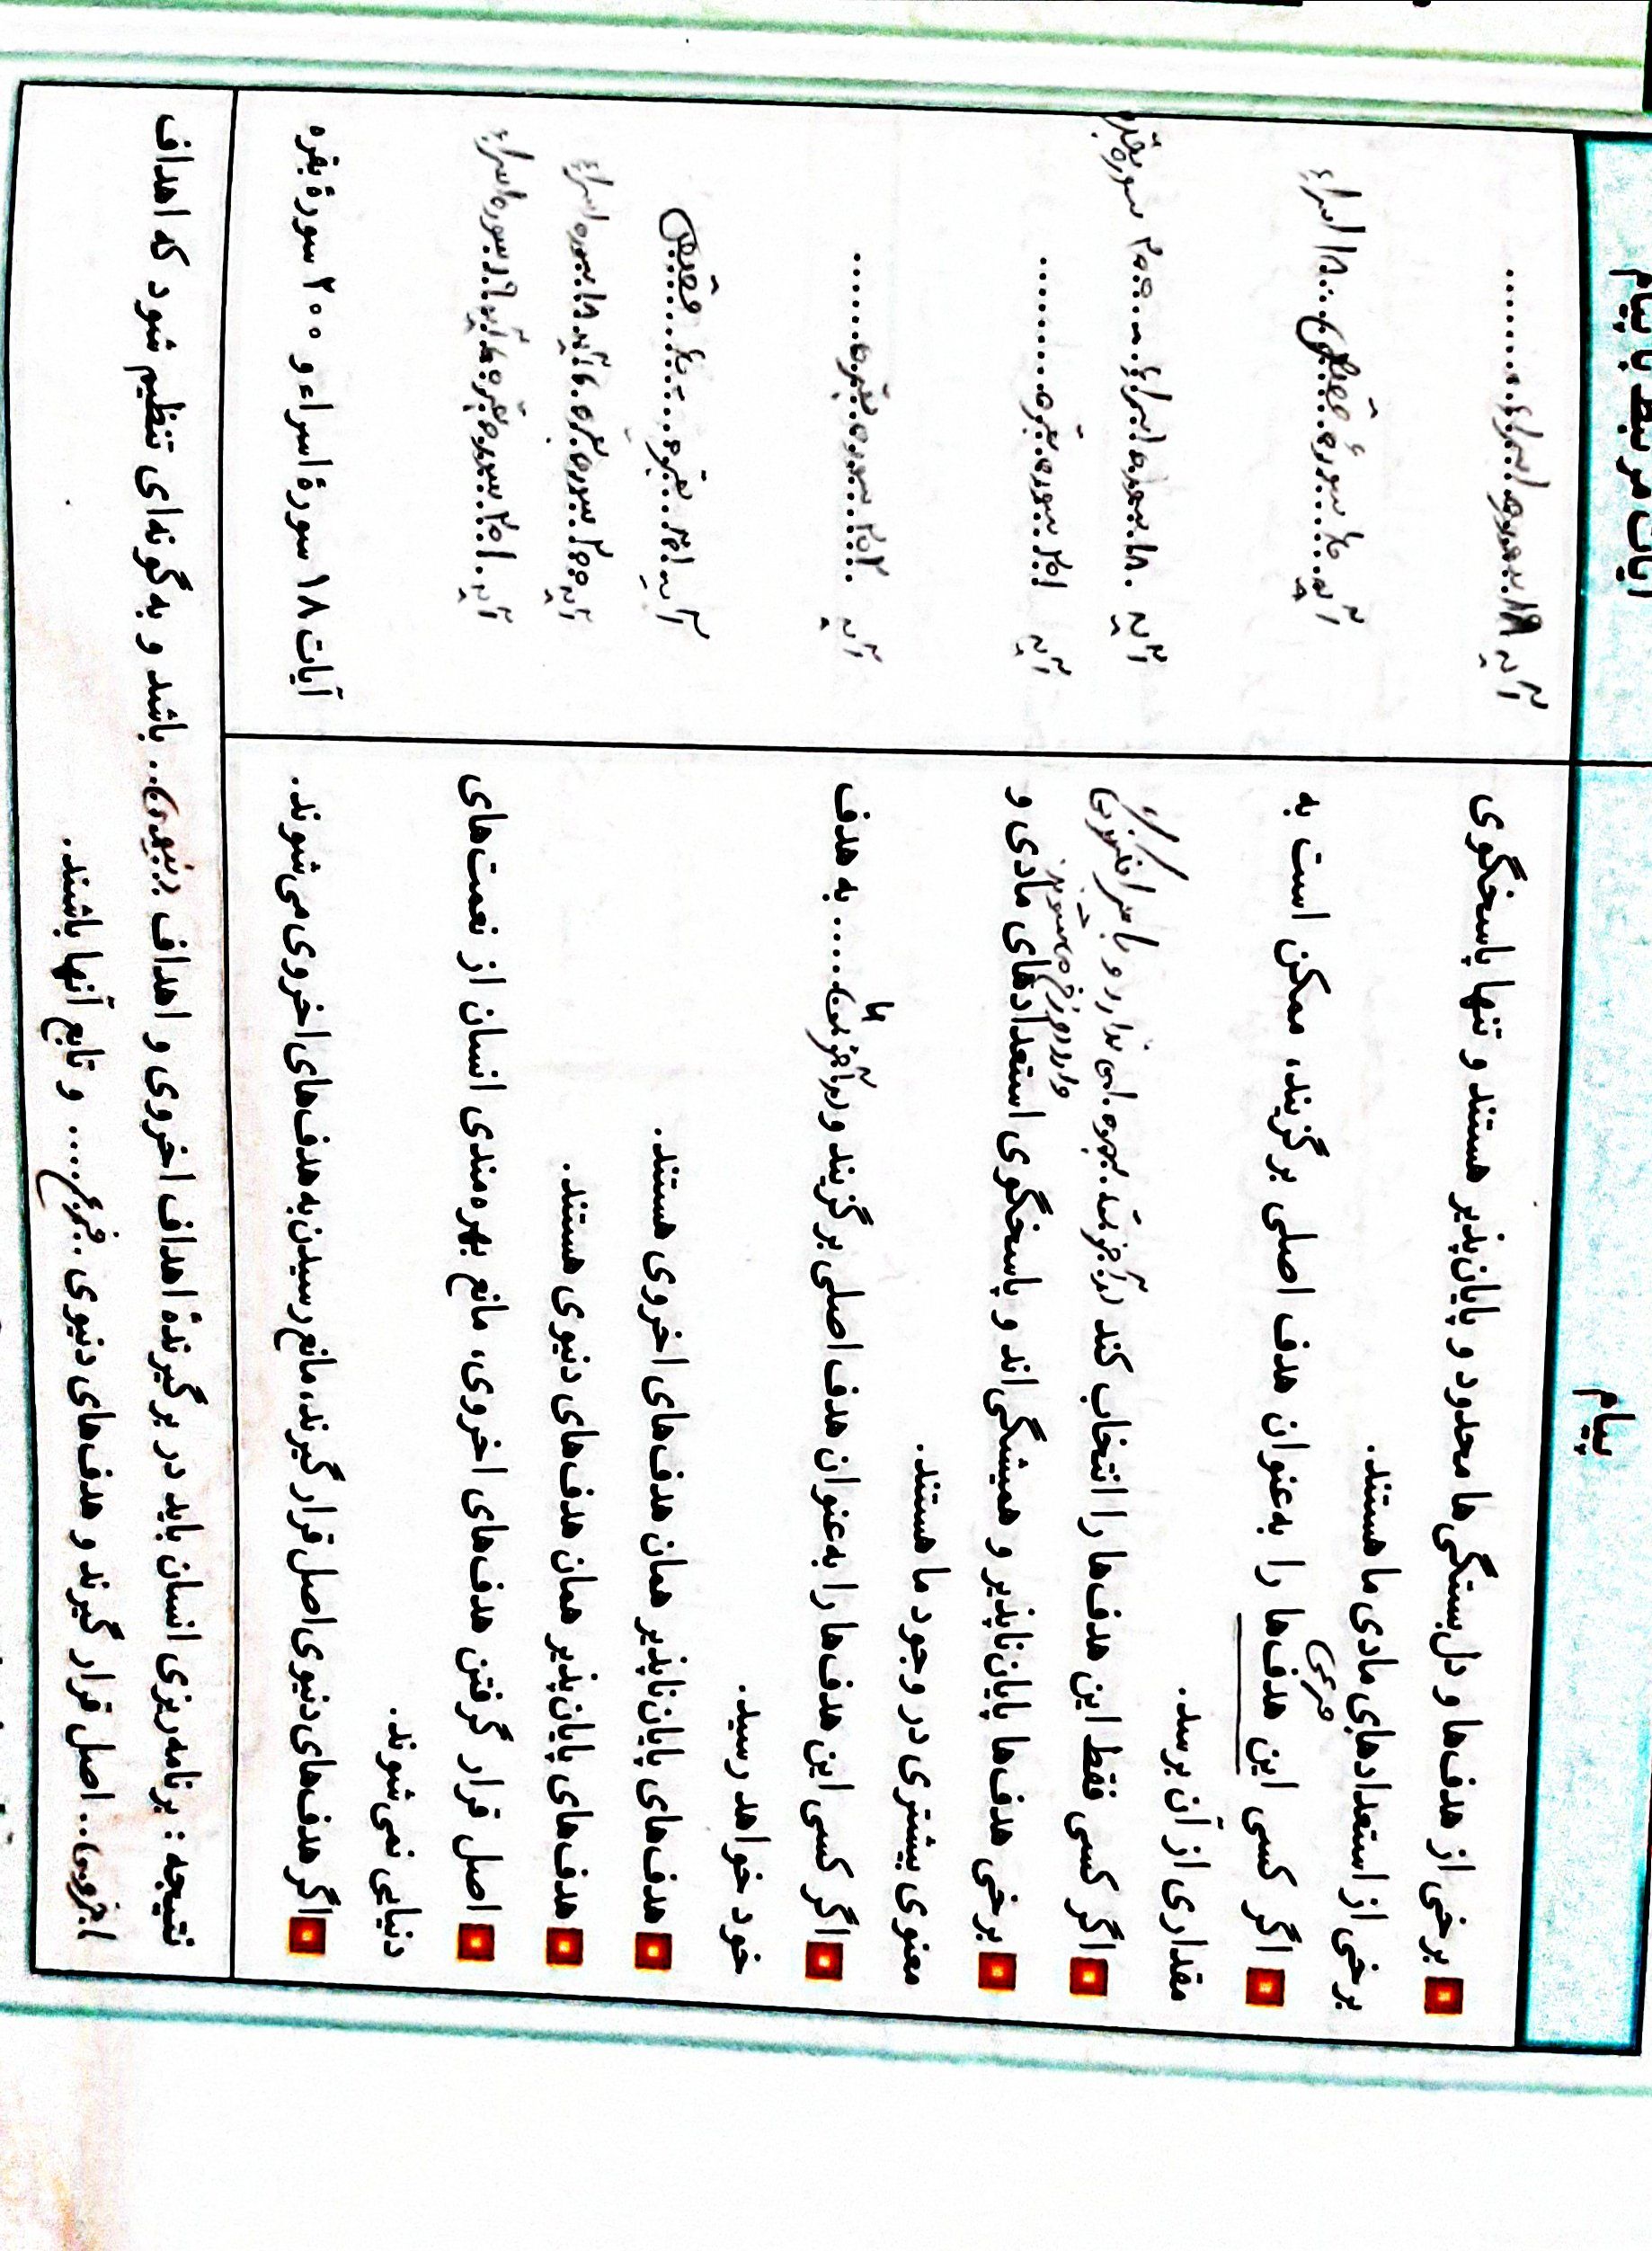 پیام
آیات مرتبط با پیام
برخی از هدف‌ها و دل‌بستگی‌ها محدود و پایان‌پذیر هستند و تنها پاسخگوی
برخی از استعدادهای مادی ما هستند.
آیه ۱۸ سوره اسراء
اگر کسی این هدف‌ها را به‌عنوان هدف اصلی برگزیند، ممکن است به
مقداری از آن برسد.
آیه ۶۰ سوره قصص، ۱۸ اسراء
اگر کسی فقط این هدف‌ها را انتخاب کند در آخرت بهره ای ندارد و با سرافکندگی
وارد دوزخ می‌شود
آیه ۱۸ سوره اسراء ۲۰۰ سوره بقره
برخی هدف‌ها پایان‌ناپذیر و همیشگی‌اند و پاسخگوی استعدادهای مادی و
معنوی بیشتری در وجود ما هستند.
آیه ۲۰۱ سوره بقره
اگر کسی این هدف‌ها را به‌عنوان هدف اصلی برگزیند و به هدف
خود خواهد رسید.
آیه ۲۰۲ سوره بقره
هدف‌های پایان‌ناپذیر همان هدف‌های اخروی هستند.
آیه بقره ۶۰ قصص
هدف‌های پایان‌پذیر همان هدف‌های دنیوی هستند.
آیه ۲۰۰ سوره بقره، آیه ۱۸ سوره اسراء
اصل قرار گرفتن هدف‌های اخروی، مانع بهره‌مندی انسان از نعمت‌های
دنیایی نمی‌شوند.
آیه ۲۰۱ سوره بقره، آیه ۱۹ سوره اسراء
اگر هدف‌های دنیوی اصل قرار گیرند، مانع رسیدن به هدف‌های اخروی می‌شوند.
آیات ۱۸ سورهٔ اسراء و ۲۰۰ سورهٔ بقره
نتیجه: برنامه‌ریزی انسان باید در برگیرندهٔ اهداف اخروی و اهداف دنیوی باشد و به گونه‌ای تنظیم شود که اهداف
اخروی اصل قرار گیرند و هدف‌های دنیوی فرع و تابع آنها باشند.